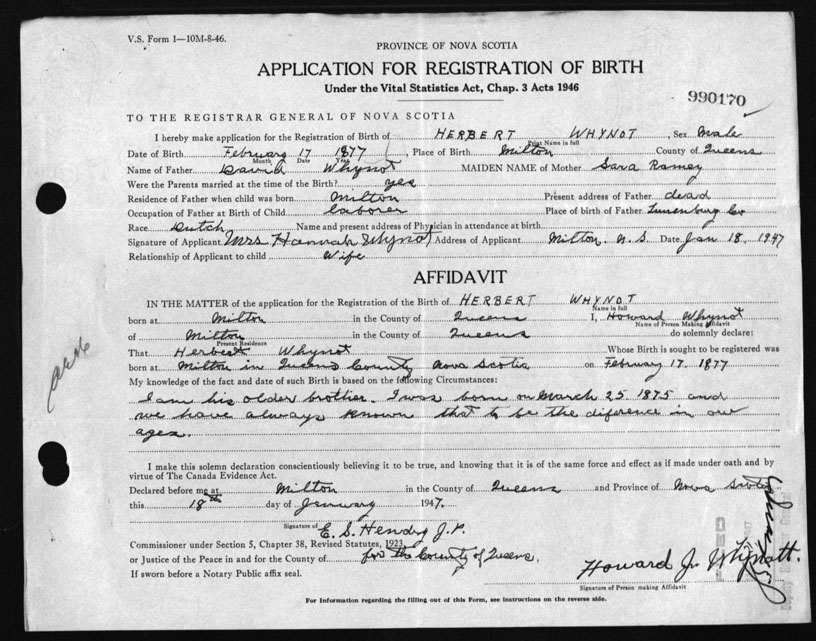 V.S. Form 1—10M-8-46.
PROVINCE OF NOVA SCOTIA
APPLICATION FOR REGISTRATION OF BIRTH
Under the Vital Statistics Act, Chap. 3 Acts 1946
990170
TO THE REGISTRAR GENERAL OF NOVA SCOTIA
I hereby make application for the Registration of Birth of HERBERT WHYNOT, Sex Male
Print Name in full
Date of Birth February 17 1877, Place of Birth Milton County of Queens
Month Date Year
Name of Father David Whynot MAIDEN NAME of Mother Sara Ramey
Were the Parents married at the time of the Birth? yes
Residence of Father when child was born Milton Present address of Father dead
Occupation of Father at Birth of Child laborer Place of birth of Father Lunenburg Co
Race Dutch Name and present address of Physician in attendance at birth
Signature of Applicant Mrs Hannah Whynot Address of Applicant Milton. N.S. Date Jan 18, 1947
Relationship of Applicant to child Wife
AFFIDAVIT
IN THE MATTER of the application for the Registration of the Birth of HERBERT WHYNOT
Name in full
born at Milton in the County of Queens I, Howard Whynot
Name of Person Making Affidavit
of Milton in the County of Queens do solemnly declare:
Present Residence
That Herbert Whynot Whose Birth is sought to be registered was
born at Milton in Queens County Nova Scotia on February 17. 1877
My knowledge of the fact and date of such Birth is based on the following Circumstances:
I am his older brother. I was born on March 25 1875 and
we have always known that to be the diference in our
ages.
I make this solemn declaration conscientiously believing it to be true, and knowing that it is of the same force and effect as if made under oath and by
virtue of The Canada Evidence Act.
Declared before me at Milton in the County of Queens and Province of Nova Scotia
this 18th day of January 1947.
Signature of E. S. Hendry J.P.
Commissioner under Section 5, Chapter 38, Revised Statutes, 1923
or Justice of the Peace in and for the County of for the County of Queens.
If sworn before a Notary Public affix seal.
Howard J. Whynott.
Signature of Person making Affidavit
For Information regarding the filling out of this Form, see instructions on the reverse side.